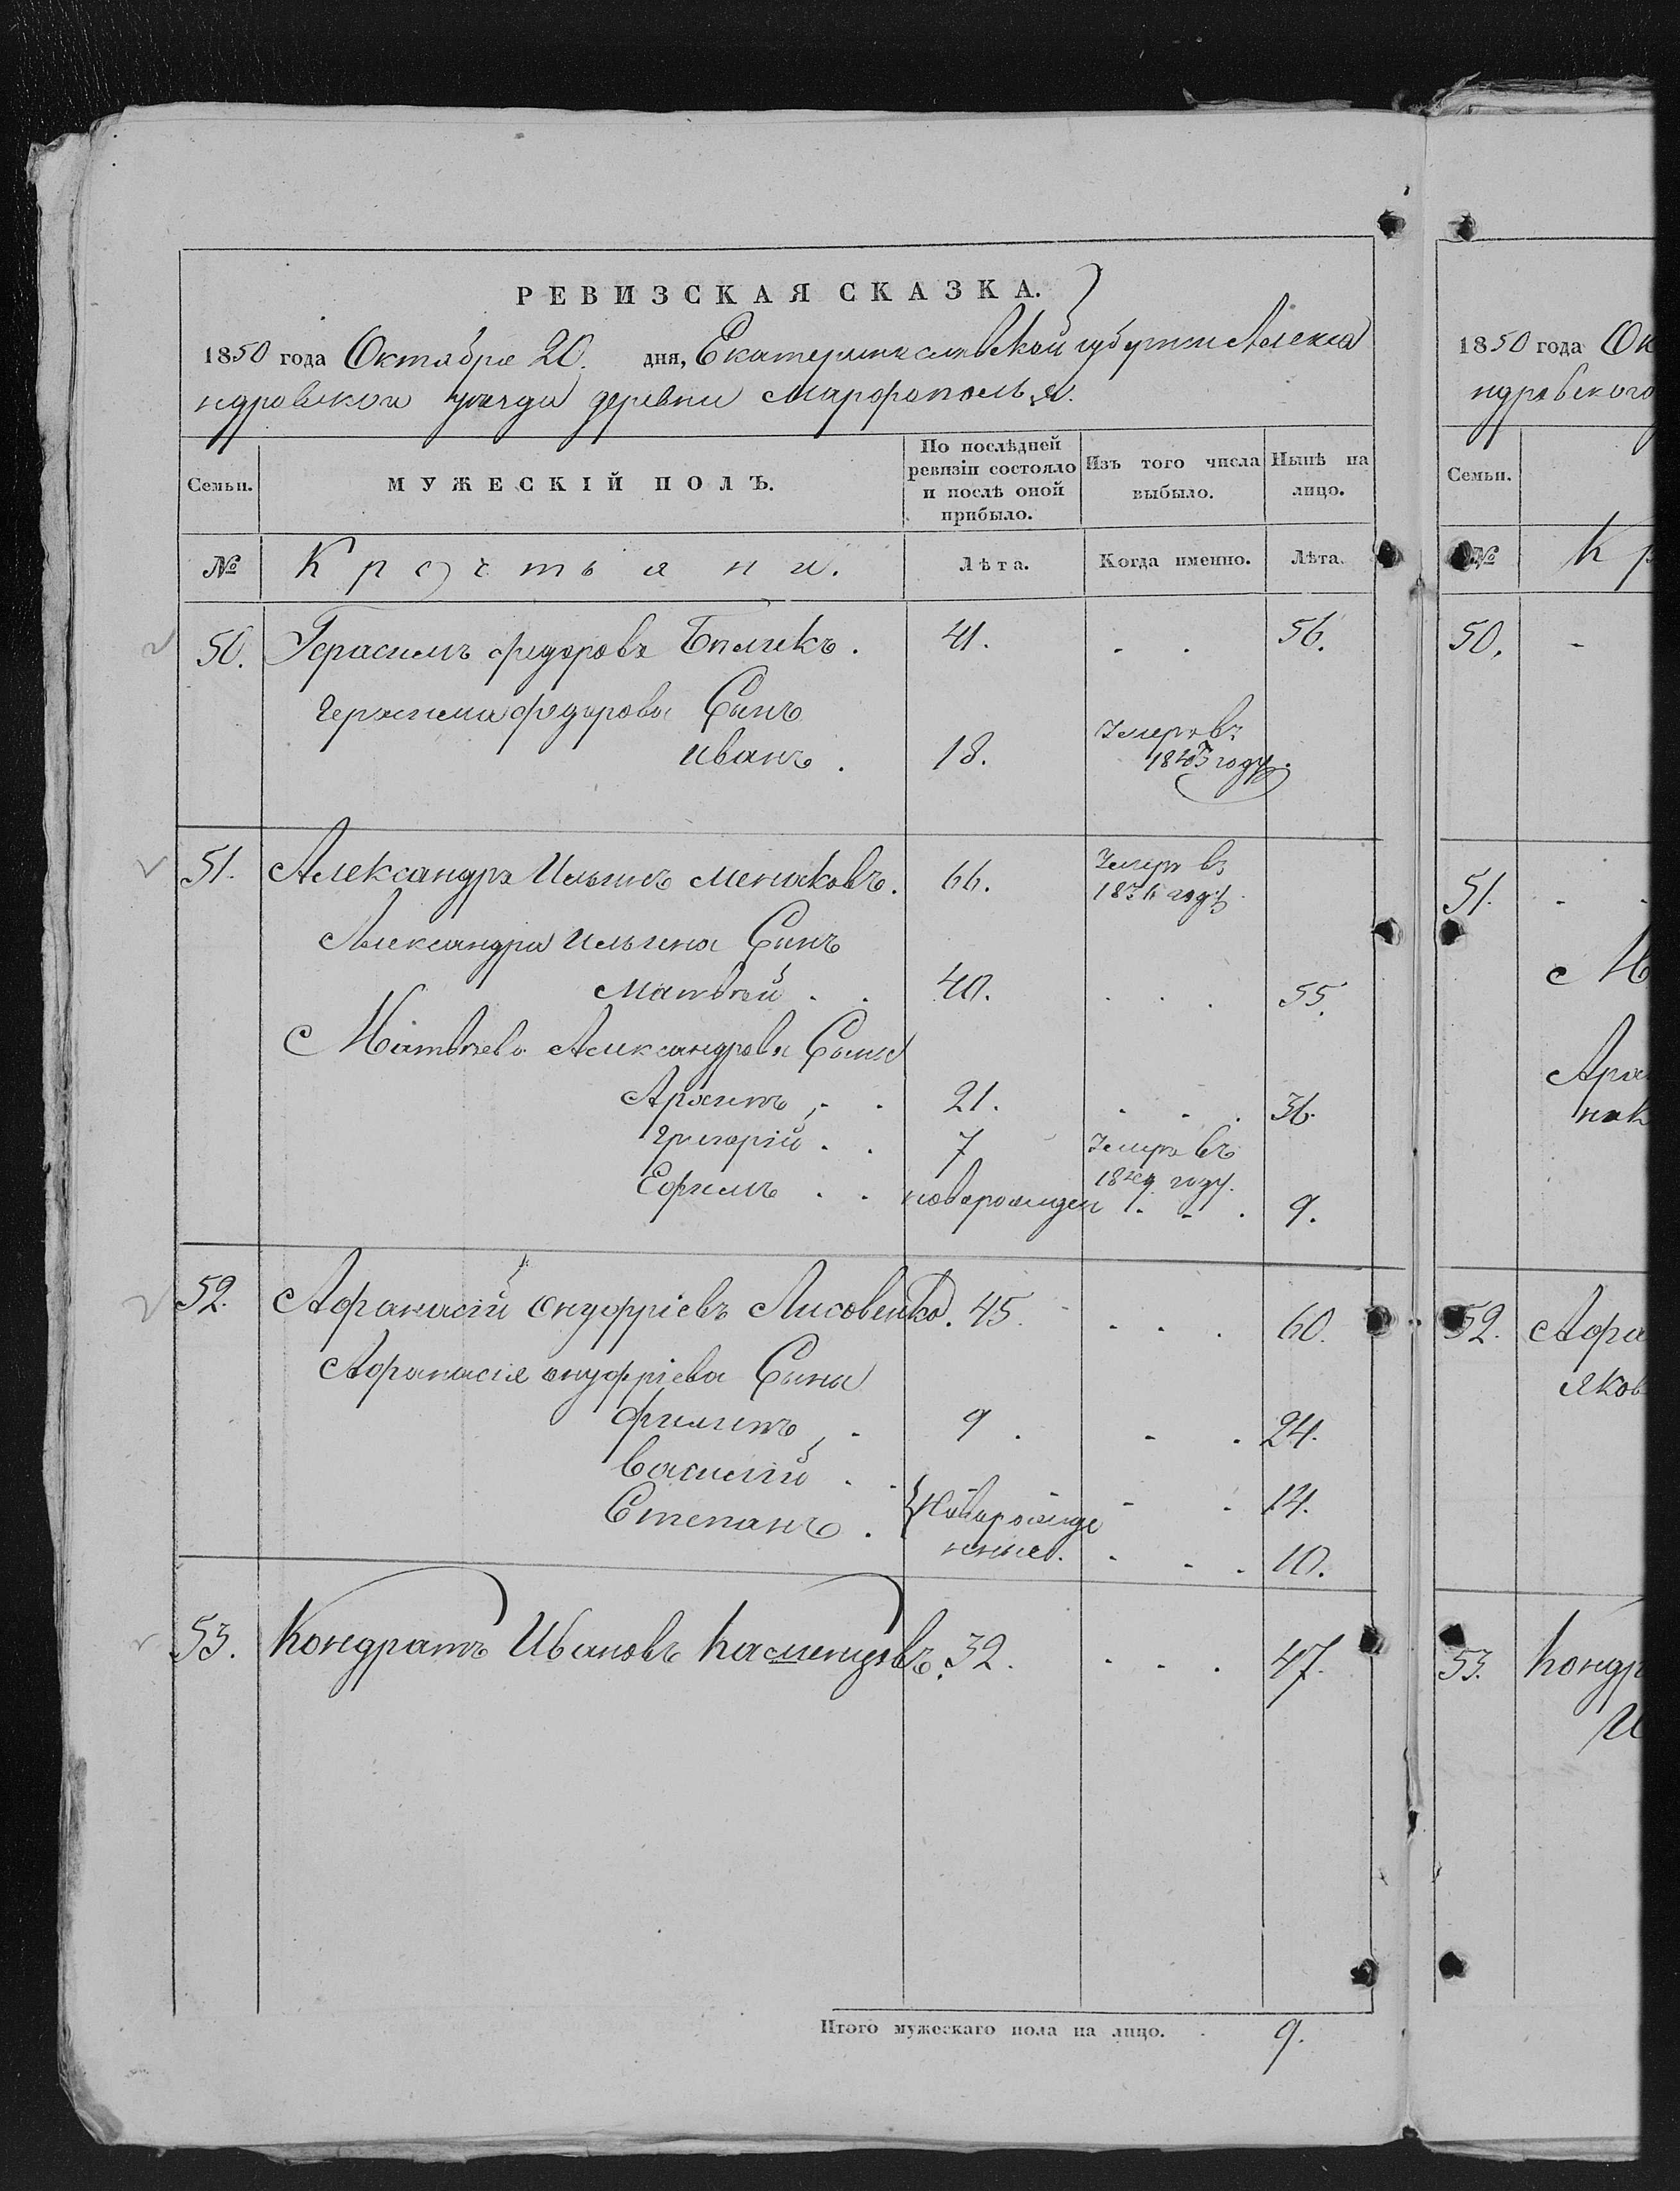 РЕВИЗСКАЯ СКАЗКА.
1850 года Октября 20. дня, Екатеринославской губернии Алекса
ндровскаго уезда деревни Марфополья.
Семьи.
МУЖЕСКІЙ ПОЛЪ.
По послѣдней ревизіи состояло и послѣ оной прибыло.
Изъ того числа выбыло.
Нынѣ на лицо.
№ Крестьяни. Лѣта. Когда именно. Лѣта.
50. Герасимъ Федоровъ 41. . . 56.
Герасима Федорова Сынъ
Иванъ . 18. Умеръ въ 1843 году.
51. Александръ Ильинъ Меньковъ. 66. Умеръ въ 1836 году.
Александра Ильина Сынъ
Матвѣй . . 40. . . . 55.
Матвѣева Александрова Сыны
Архипъ . . 21. . . . 36.
Григорій . . 7 Умеръ въ 1849 году.
Ефимъ . . новорожден . . . 9.
52. Афанасій Онуфріевъ Лисовенко. 45. . . . 60.
Афанасія Онуфріева Сыны
Филипъ . . 9 . . . 24.
Василій . . . . 14.
Степанъ . {Новорожде
нные. . . . 10.
53. Кондратъ Ивановъ . 32. . . . 47.
Итого мужескаго пола на лицо. . 9.
1850 года Ок
ндровскаго
Семьи.
№ Кр
50. -
51. . .
М
Арх
52. Афа
Яков
53. Кондр
И